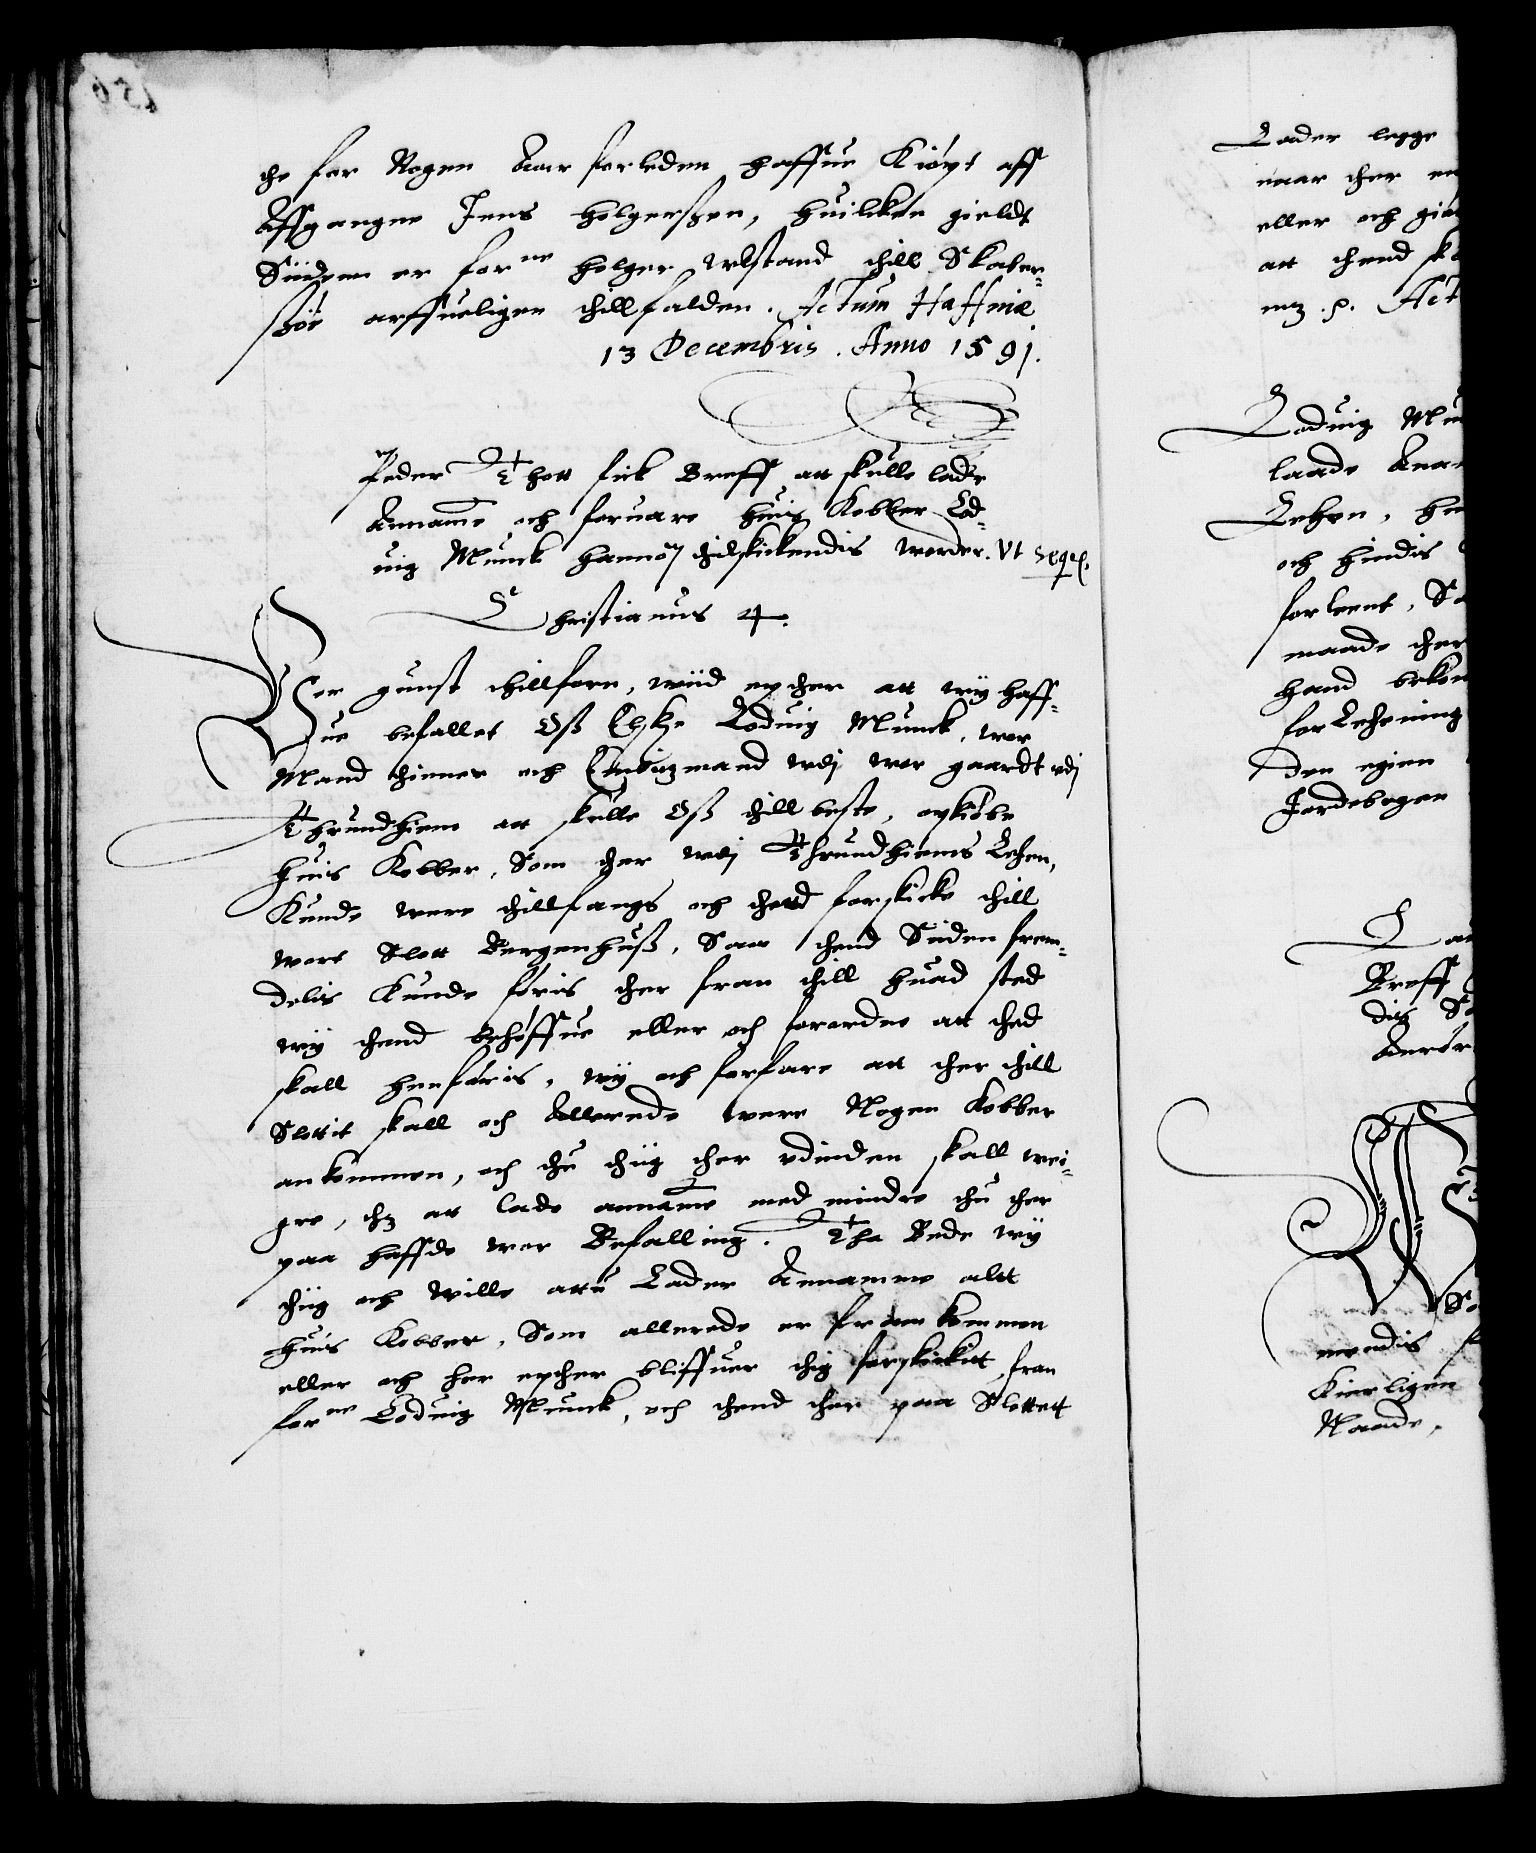 the for Nogen Aar forleden haffue Kiøpt aff
Affgangne Jens Holgerßen, huilcken gieldt
Siiden er forne Holger Wlstand thill Skaber-
siøe arffueligen thillfalden. Actum Haffniæ
13 Decembris. Anno 1591.
Peder Thott fick Breff att skulle lade
Anname och foruare huis Kobber Lod-
uig Munck hannom thilskickendis worder. Vt seqr.
Christianus 4.
Wor gunst thillforn, wiid epther att wy haff-
ue befallet Oß Elske Loduig Munck, wor
Mand thiener och Embitzmand wdj wor gaardt wdj
Thrundhiem att skulle Oß thill beste, opkiøbe
huis Kobber, Som ther wdj Thrundhiems Lehen,
Kunde were thillfangs och thend forskicke thill
wort Slott Bergenhuß, Saa thend Siiden frem-
delis Kunde føris ther fran thill huad sted
wy thend behøffue eller och forordne att thed
skall henføris, wy och forfare att ther thill
Slottit skall och Allerede were Nogen Kobber
ankommen, och thu thiig ther vdinden skall wei-
gre, thz at lade anname med mindre thu ther
paa haffde wor Befalling. Tha Bede wy
thiig och wille attu Lader Annamme alt
huis Kobber, Som allerede er frem kommen
eller och her epther bliffuer thig forskickit fran
forne Loduig Munck, och thend ther paa Slottet
Lader legge
naar ther
eller och
att thend
mz. p. Act
Loduig Mu
laade
Lehen,
och hindis
forleent,
maade ther
hand
for Lehening
den egien
Jordebogen
Breff
dis
Kierligen
Naade,